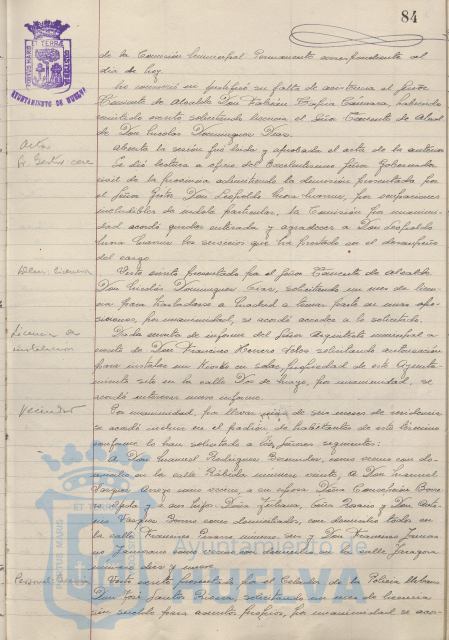 84
AYUNTAMIENTO DE HUELVA
de la Comisión Municipal Permanente correspondiente al
día de hoy.
No concurrió ni justificó su falta de asistencia el Señor
Teniente de Alcalde Don Fabián Cámara, habiendo
escrito solicitando licencia el Señor Teniente de Alcal
de Don Nicolás Domínguez Díaz.
Acta
Abierta la sesión fué leída y aprobada el acta de la anterior
Se dió lectura a oficio del Excelentísimo Señor Gobernador
civil de la provincia admitiendo la dimisión presentada por
el Señor Gestor Don Leopoldo por ocupaciones
ineludibles de índole particular, la Comisión por unanimi-
dad acordó quedar enterada y agradecer a Don Leopoldo
los servicios que ha prestado en el desempeño
del cargo.
Licencia
Visto escrito presentado por el Señor Teniente de Alcalde
Don Nicolás Domínguez Díaz, solicitando un mes de licen-
cia para trasladarse a Madrid a tomar parte en unas opo-
siciones, por unanimidad, se acordó acceder a lo solicitado.
Licencia de
instalación
Dada cuenta de informe del Señor Arquitecto municipal a
escrito de Don Francisco Herrero solicitando autorización
para instalar un Kiosko en solar propiedad de este Ayunta-
miento sito en la calle Dos de Mayo, por unanimidad, se
acordó interesar nuevo informe.
Vecindad
Por unanimidad, por llevar más de seis meses de residencia
se acordó incluir en el padrón de habitantes de este término
conforme lo han solicitado a los Señores siguientes:
A Don Manuel Rodríguez Bermúdez, como vecino con do-
micilio en la calle Rábida número veinte, A Don Manuel
Vazquez como vecino, a su esposa Doña Concepción
y a sus hijos Doña Juliana, Rosario y Don Anto-
nio Vazquez como domiciliados, con domicilio todos en
la calle Francisco número seis y Don Francisco
Zamorano como vecino con domicilio en la calle Zaragoza
número diez y nueve.
Personal
Visto escrito presentado por el Celador de la Policía Urbana
Don José Santos solicitando un mes de licencia
sin sueldo para asuntos propios, por unanimidad se acor-
ET TERRÆ
PORTUS MARIS
Ayuntamiento de
HUELVA